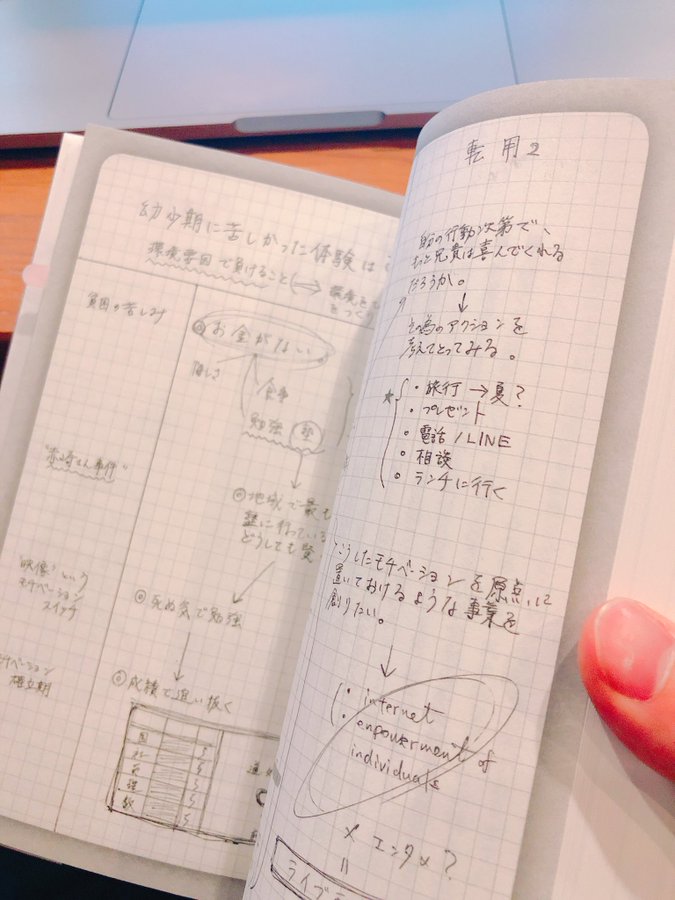 幼少期に苦しかった体験は
環境要因で負けること(→ 環境を
をつく
貧困の苦しみ
お金がない。
悔しさ
食事
勉強 塾
事件"
地域で最も
塾に行っている
どうしても
"映像"という
モチベーション
スイッチ
死ぬ気で勉強
モチベーション
確立期
成績で追い抜く
国 5
社 5
英 5
理 5
数 5
転用2
自分の行動次第で、
もっと兄貴は喜んでくれる
だろうか。
↓
その為のアクションを
考えてとってみる。
★
・旅行 → 夏?
・プレゼント
・電話/LINE
・相談
・ランチに行く
こうしたモチベーションを原点に
置いておけるような事業を
創りたい。
↓
・internet
・empowerment of
individuals
× エンタメ?
=
ライブ